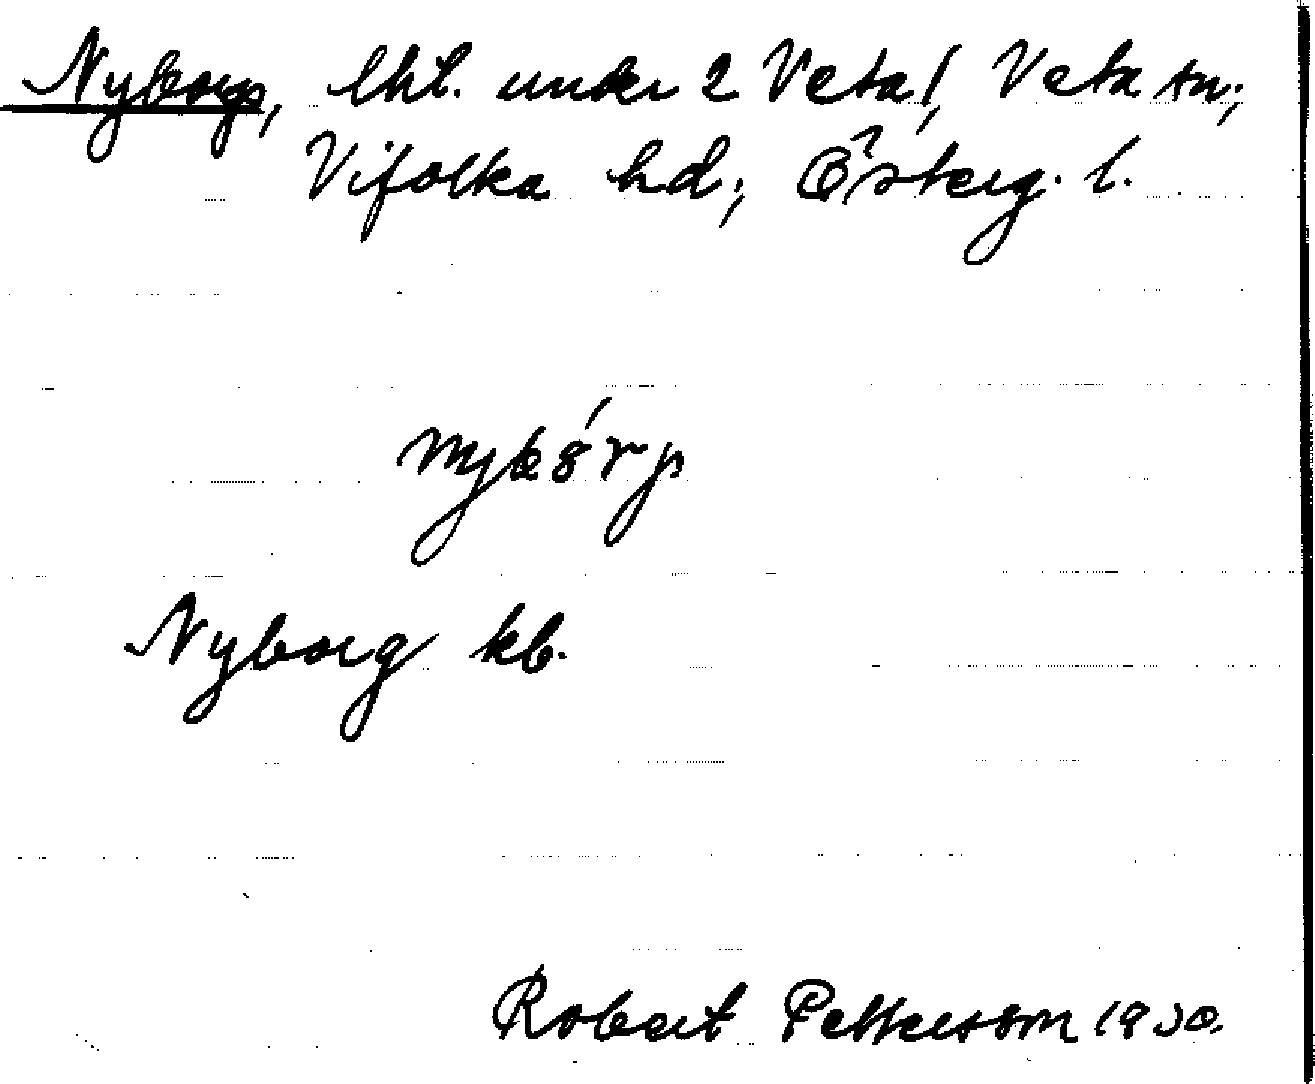 Nyborg, lht. under 2 Veta!, Veta sn;
Vifolka hd; Österg. l.
Nyborg kb.
Robert Petterson 1930.